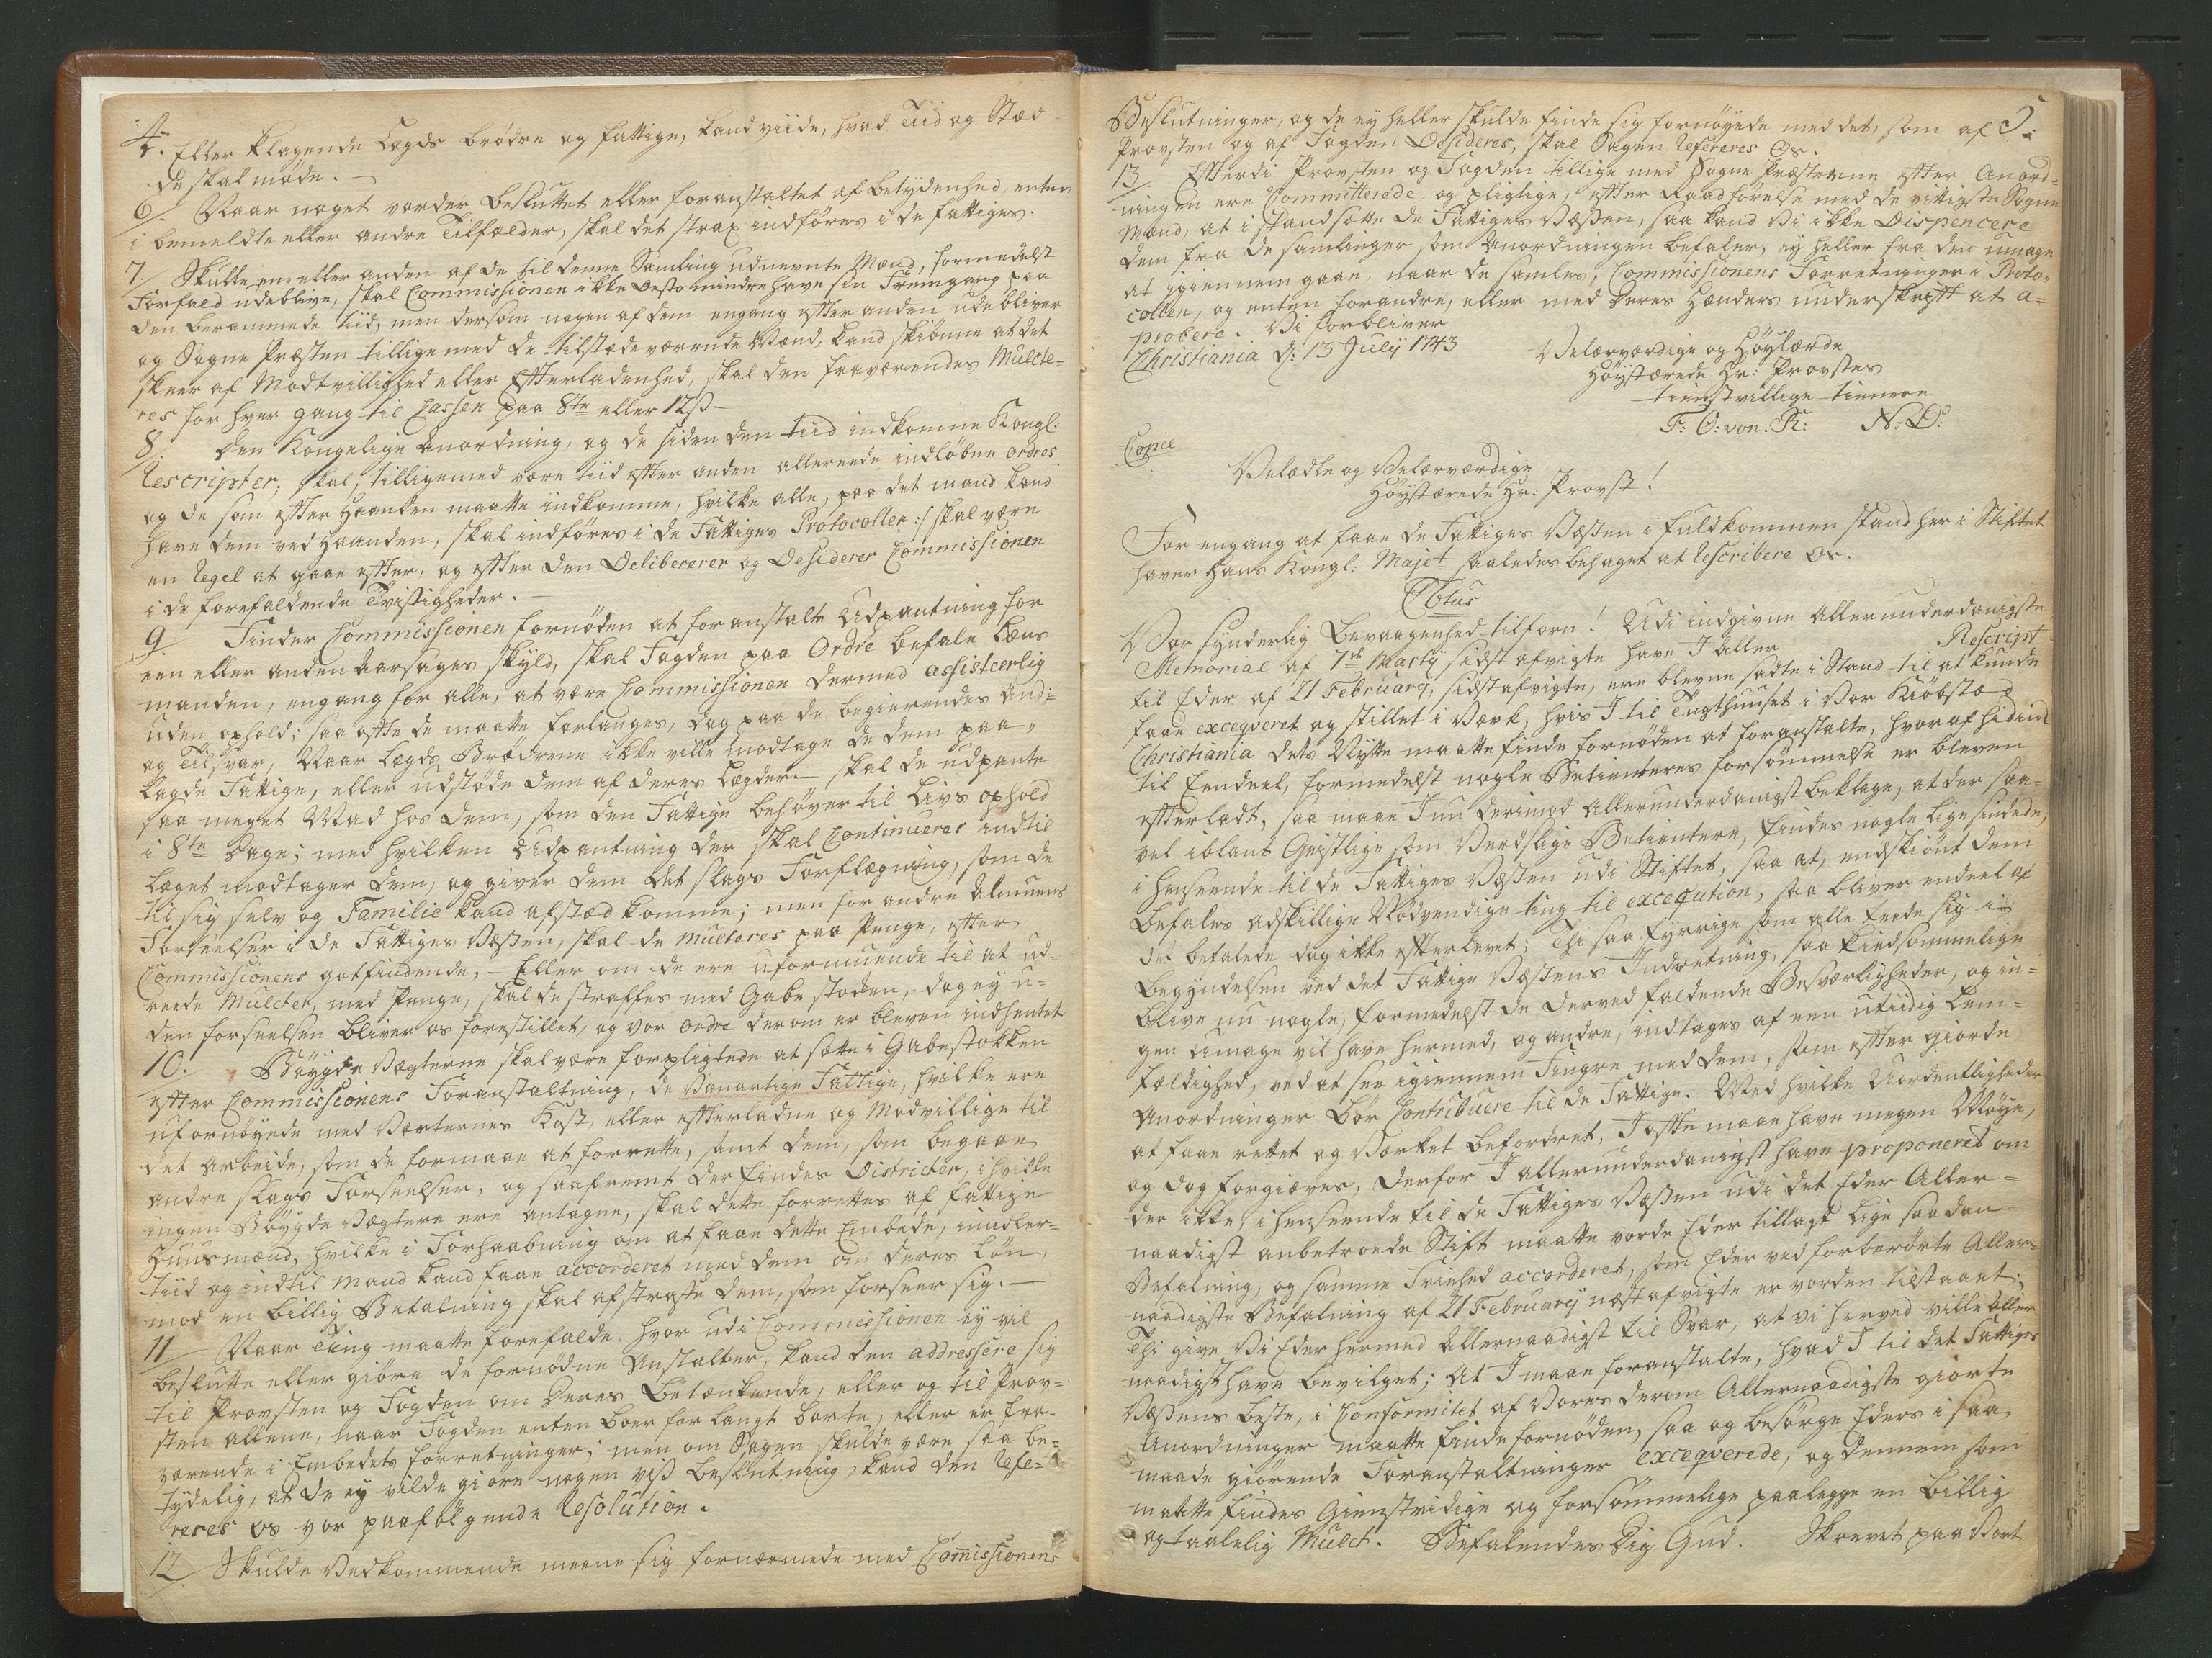 4.
Eller klagende Legds brødre og fattige, kand viide, hvad Tiid og Stæd
de skal møde. —
6. Naar noget vorder besluttet eller foranstaltet af betydenhed, enten
i bemeldte eller andre Tilfælder, skal det strax indføres i de fattiges.
7. Skulle en eller anden af de til denne Samling udnevnte Mænd, formedelst
Forfald udeblive, skal Commissionen ikke desto mindre have sin Fremgang paa
den berammede tiid, men dersom nogen af dem engang efter anden udebliver
og Sogne Præsten tillige med de tilstædeværende Mænd, kand skiønne at det
skeer af Modtvillighed eller Efterladenhed, skal den fraværendes Mulcte-
res for hver gang til Cassen paa 8te eller 12 ß —
8. Den Kongelige Anordning, og de siden den tiid indkomne Kongl:
Rescripter; skal, tilligemed vore tiid efter anden allereede indløbne ordres
og de som efter Haanden maatte indkomme, hvilke alle, paa det mand kand
have dem ved Haanden, skal indføres i de Fattiges Protocoller :/ skal være
en Regel at gaae efter, og efter den Delibererer og Desiderer Commissionen
i de forefaldende Tvistigheder. —
9. Finder Commissionen fornøden at foranstalte Udpantning for
een eller anden Aarsages skyld, skal Fogden paa Ordre befale Læns
manden, engang for alle, at være Commissionen dermed assisteerlig
uden ophold; saa ofte de maatte forlanges, dog paa de begierendes And:
og Tilsvar, Naar Legds Brødrene ikke ville modtage de dem paa-
lagde Fattige, eller udstøde dem af deres Legder — skal de udpante
saa meget Mad hos dem, som den Fattige behøver til Livs ophold
i 8te Dage; med hvilken Udpantning der skal Continueres indtil
Læget modtager dem, og giver dem det slags Forflegning, som de
til sig selv og Familie kand afsted komme; men for andre Almuens
Forseelser i de Fattiges Væßen, skal de mulcteres paa Penge, efter
Commissionens gotfindende, — Eller om de ere uformuende til at ud-
reede Mulcter, med Penge, skal de straffes med Gabestocken, dog ey u-
den forseelsen bliver os forestillet, og vor ordre derom er bleven indhentet
10. Bøygde Vægterne skal være forpligtede at sætte i Gabestokken
efter Commissionens Foranstaltning, de Vanartige Fattige, hvilke ere
ufornøyede med Værternes Kost, eller efterladne og Modvillige til
det Arbeide, som de formaae at forrette, samt dem, som begaae
andre slags Forseelser, og saafremt der findes Districter, i hvilke
ingen Bøygde Vægtere ere antagne, skal dette forrettes af fattige
Huusmænd, hvilke i Forhaabning om at faae dette Embede, imidler-
tiid og indtil Mand kand faae accorderet med dem om deres Løn,
mod en billig Betalning skal afstraffe dem, som forseer sig. —
11. Naar Ting maatte forefalde hvor udi Commissionen ey vil
beslutte eller giøre de fornødne Anstalter, kand den addressere sig
til Provsten og Fogden om Deres Betænkende, eller og til Prov-
sten allene, naar Fogden enten boer for langt borte, eller er fra-
værende i Embedets forretninger; men om Sagen skulde være saa be-
tydelig, at de ey vilde giøre nogen viß beslutning, kand den Refe-
reres os vor paafølgende Resolution.
12. Skulde Vedkommende meene sig fornærmede med Comissionens
5.
Beslutninger, og de ey heller skulde finde sig fornøyede med det, som af
Provsten og af Fogden Desideres, skal Sagen Refereres Os.
13. Efterdi Provsten og Fogden tillige med Sogne Præsterne efter Anord-
ningen ere Committerede og pligtige, efter Raadførelse med de vittigste Sogne
Mænd, at i Stand sætte de Fattiges Væßen, saa kand Vi ikke Dispencere
dem fra de samlinger som Anordningen befaler, ey heller fra den umage
at igiennem gaae, naar de samles, Commissionens Forretninger i Proto-
collen, og enten forandre, eller med deres Hænders underskrift at a-
probere. Vi forbliver
Christiania d: 13 July 1743
Velærværdige og Høylærde
Høystærede Hr: Provstes
tienstvillige tiennere
F: O: von. R: N: D:
Copie
Velædle og Velærværdige
Høystærede Hr: Provst!
For engang at faae de Fattiges Væßen i fuldkommen stand her i Stiftet
haver Hans Kongl: Majet saaledes behaget at Rescribere Os.
Ctus
Vor synderlig Bevaagenhed tilforn! Udi indgivne Allerunderdanigste
Memorial af 7de Marty sidst afvigte have I aller Rescript
til Eder af 21 February, sidst afvigte, ere blevne sadte i Stand til at kunde
faae exceqveret og stillet i Værk, hvis I til Tugthuuset i Vor Kiøbstæd
Christiania dets Nytte maatte finde fornøden at foranstalte, hvor af hidind
til Eendeel, formedelst nogle Betienteres forsømmelse er bleven
efterladt, saa maae I nu derimod Allerunderdanigst beklage, at der saa-
vel iblant Geistlige som Verdslige Betientere, findes nogle lige sindede,
i henseende til de Fattiges Væßen udi Stiftet, saa at, endskiønt dem
befales adskillige Nødvendige ting til exceqution, saa bliver endeel af
det befalede dog ikke efterlevet; Thi saa fyrrige som alle teede sig i
begyndelsen ved det Fattige Væßens Indretning, saa kiedsommelige
blive nu nogle, formedelst de derved faldende Besværligheder, og in-
gen Umage vil have hermed, og andre, indtages af een utiidig Læm-
fældighed, ved at see igiennem Fingre med dem, som efter giorde
Anordninger bør Contribuere til de Fattige. Med hvilke Uordentligheder
at faae rettet og Værket befordret, I ofte maae have megen Møye,
og dog forgiæves, derfor I allerunderdanigst have proponeret om
der ikke i henseende til de Fattiges Væßen udi det Eder Aller-
naadigst anbetroede Stift maatte vorde Eder tillagt lige saadan
Befalning, og samme Friehed accorderet, som Eder ved forberørte Aller-
naadigste Befalning af 21 February næstafvigte er vorden tilstaaet;
Thi give Vi Eder hermed Allernaadigst til Svar, at vi herved ville Aller
naadigst have bevilget; At I maae foranstalte, hvad I til det Fattiges
Væßens beste, i Conformitet af Vores derom Allernaadigste giorte
Anordninger maatte finde fornøden, saa og besørge Eders i saa
maade giørende Foranstaltninger exceqverede, og dennem som
maatte findes Gienstridige og forsømmelige paalegge en billig
og taalelig Mulct. Befalendes Dig Gud. Skrevet paa Vort